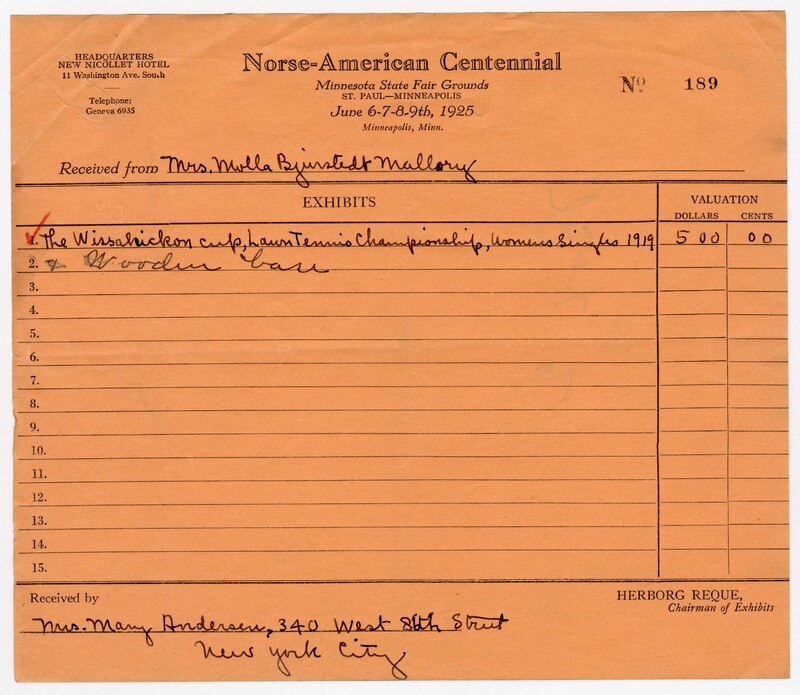 HEADQUARTERS
NEW NICOLLET HOTEL
11 Washington Ave. South
Telephone:
Geneva 6935
Norse-American Centennial
Minnesota State Fair Grounds
ST. PAUL—MINNEAPOLIS
June 6-7-8-9th, 1925
Minneapolis, Minn.
Nº 189
Received from Mrs. Molla Bjurstedt Mallory
EXHIBITS
VALUATION
DOLLARS CENTS
1. The Wissahickon cup, Lawn Tennis Championship, Womens Singles 1919 500 00
2. & Wooden base
3.
4.
5.
6.
7.
8.
9.
10.
11.
12.
13.
14.
15.
Received by
HERBORG REQUE,
Chairman of Exhibits
Mrs. Mary Andersen, 340 West 86th Street
New York City